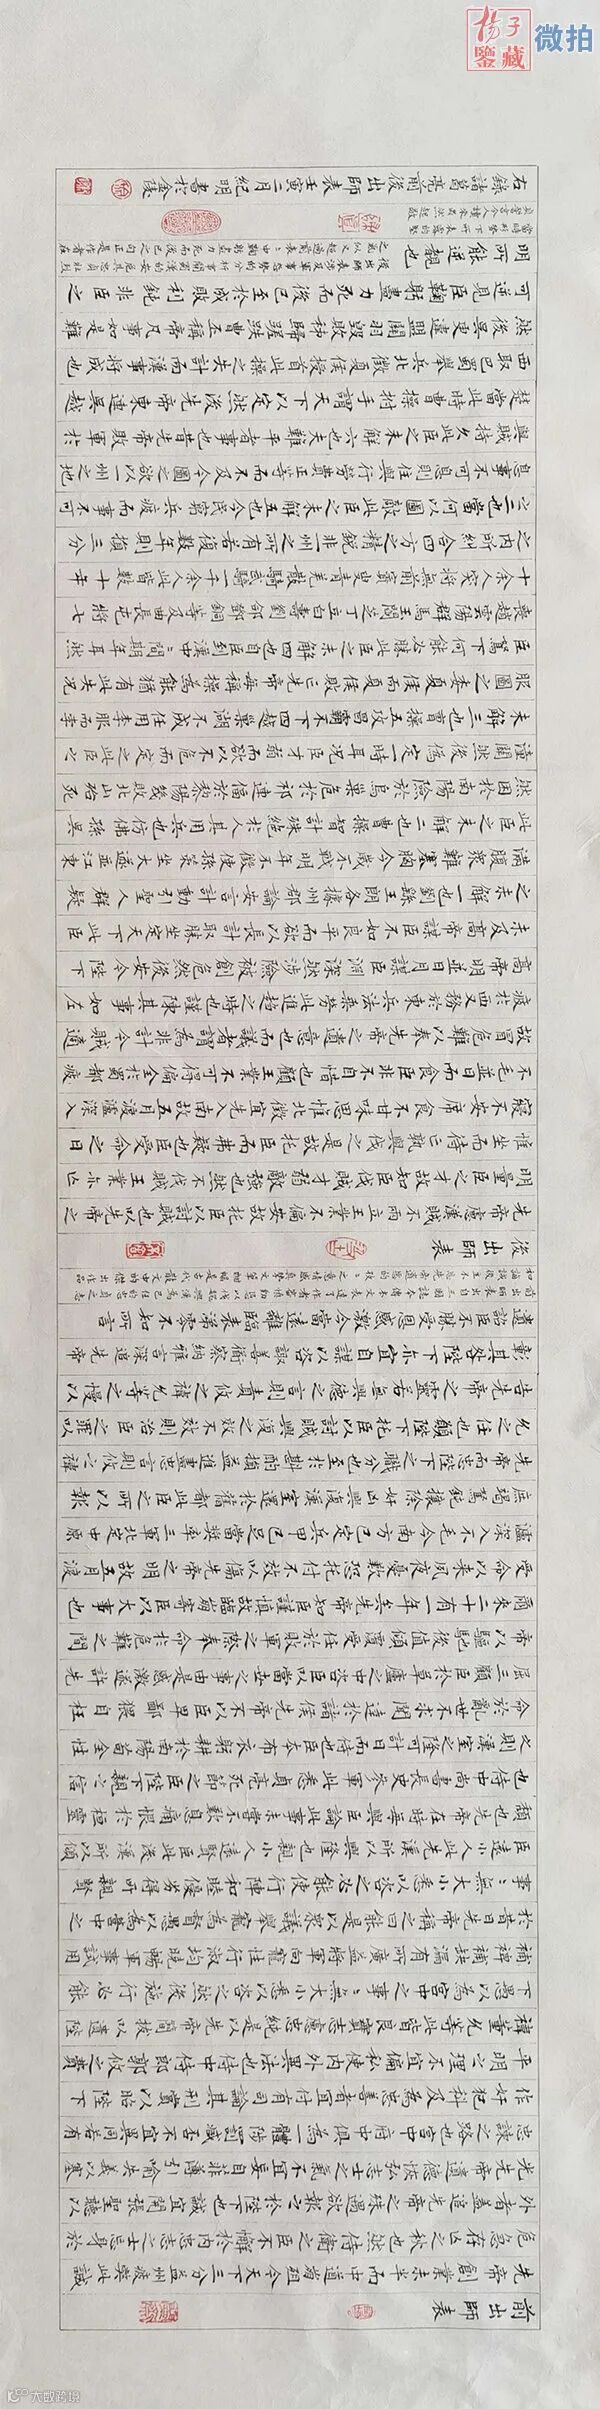 前出師表
先帝創業未半而中道崩殂今天下三分益州疲弊此誠
危急存亡之秋也然侍衛之臣不懈於內忠志之士忘身於
外者蓋追先帝之殊遇欲報之於陛下也誠宜開張聖聽以
光先帝遺德恢弘志士之氣不宜妄自菲薄引喻失義以塞
忠諫之路也宮中府中俱為一體陟罰臧否不宜異同若有
作奸犯科及為忠善者宜付有司論其刑賞以昭陛下
平明之理不宜偏私使內外異法也侍中侍郎郭攸之費
禕董允等此皆良實志慮忠純是以先帝簡拔以遺陛
下愚以為宮中之事〻無大小悉以咨之然後施行必能
裨補缺漏有所廣益將軍向寵性行淑均曉暢軍事試用
於昔日先帝稱之曰能是以眾議舉寵為督愚以為營中之
事〻無大小悉以咨之必能使行陣和睦優劣得所親賢
臣遠小人此先漢所以興隆也親小人遠賢臣此後漢所以傾
頹也先帝在時每與臣論此事未嘗不歎息痛恨於桓靈
也侍中尚書長史參軍此悉貞亮死節之臣陛下親之信
之則漢室之隆可計日而待也臣本布衣躬耕於南陽苟全性
命於亂世不求聞達於諸侯先帝不以臣卑鄙猥自枉
屈三顧臣於草廬之中咨臣以當世之事由是感激遂許先
帝以驅馳後值傾覆受任於敗軍之際奉命於危難之間
爾來二十有一年矣先帝知臣謹慎故臨崩寄臣以大事也
受命以來夙夜憂歎恐托付不效以傷先帝之明故五月渡
瀘深入不毛今南方已定兵甲已足當獎率三軍北定中原
庶竭駑鈍攘除奸凶興復漢室還於舊都此臣之所以報
先帝而忠陛下之職分也至於斟酌損益進盡忠言則攸之禕
允之任也願陛下托臣以討賊興復之效不效則治臣之罪以
告先帝之靈若無興德之言則責攸之禕允等之慢以
彰其咎陛下亦宜自謀以咨諏善道察納雅言深追先帝
遺詔臣不勝受恩感激今當遠離臨表涕零不知所言
後出師表
先帝慮漢賊不兩立王業不偏安故托臣以討賊也以先帝之
明量臣之才故知臣伐賊才弱敵強也然不伐賊王業亦亡
惟坐而待亡孰與伐之是故托臣而弗疑也臣受命之日
寢不安席食不甘味思惟北征宜先入南故五月渡瀘深入
不毛並日而食臣非不自惜也顧王業不可得偏全於蜀都
故冒危難以奉先帝之遺意也而議者謂為非計今賊適
疲於西又務於東兵法乘勞此進趨之時也謹陳其事如左
高帝明並日月謀臣淵深然涉險被創危然後安今陛下
未及高帝謀臣不如良平而欲以長計取勝坐定天下此臣
之未解一也劉繇王朗各據州郡論安言計動引聖人群疑
滿腹眾難塞胸今歲不戰明年不征使孫策坐大遂並江東
此臣之未解二也曹操智計殊絕於人其用兵也仿佛孫吳
然困於南陽險於烏巢危於祁連偪於黎陽幾敗北山殆死
潼關然後偽定一時耳況臣才弱而欲以不危而定之此臣之
未解三也曹操五攻昌霸不下四越巢湖不成任用李服而李
服圖之委夏侯而夏侯敗亡先帝每稱操為能猶有此失況
臣駑下何能必勝此臣之未解四也自臣到漢中〻間期年耳然
喪趙雲陽群馬玉閻芝丁立白壽劉郃鄧銅等及曲長屯將七
十余人突將無前賨叟青羌散騎武騎一千余人此皆數十年
之內所糾合四方之精銳非一州之所有若復數年則損三分
之二也當何以圖敵此臣之未解五也今民窮兵疲而事不可
息事不可息則住與行勞費正等而不及今圖之欲以一州之地
與賊持久此臣之未解六也夫難平者事也昔先帝敗軍於
楚當此時曹操拊手謂天下以定然後先帝東連吳越
西取巴蜀舉兵北征夏侯授首此操之失計而漢事將成也
然後吳更違盟關羽毀敗秭歸蹉跌曹丕稱帝凡事如是難
可逆見臣鞠躬盡力死而後已至於成敗利鈍非臣之
明所能逆覩也
右錄諸葛亮前後出師表壬寅二月紀明書於金陵
楊子鑒藏
微拍
大数跨境